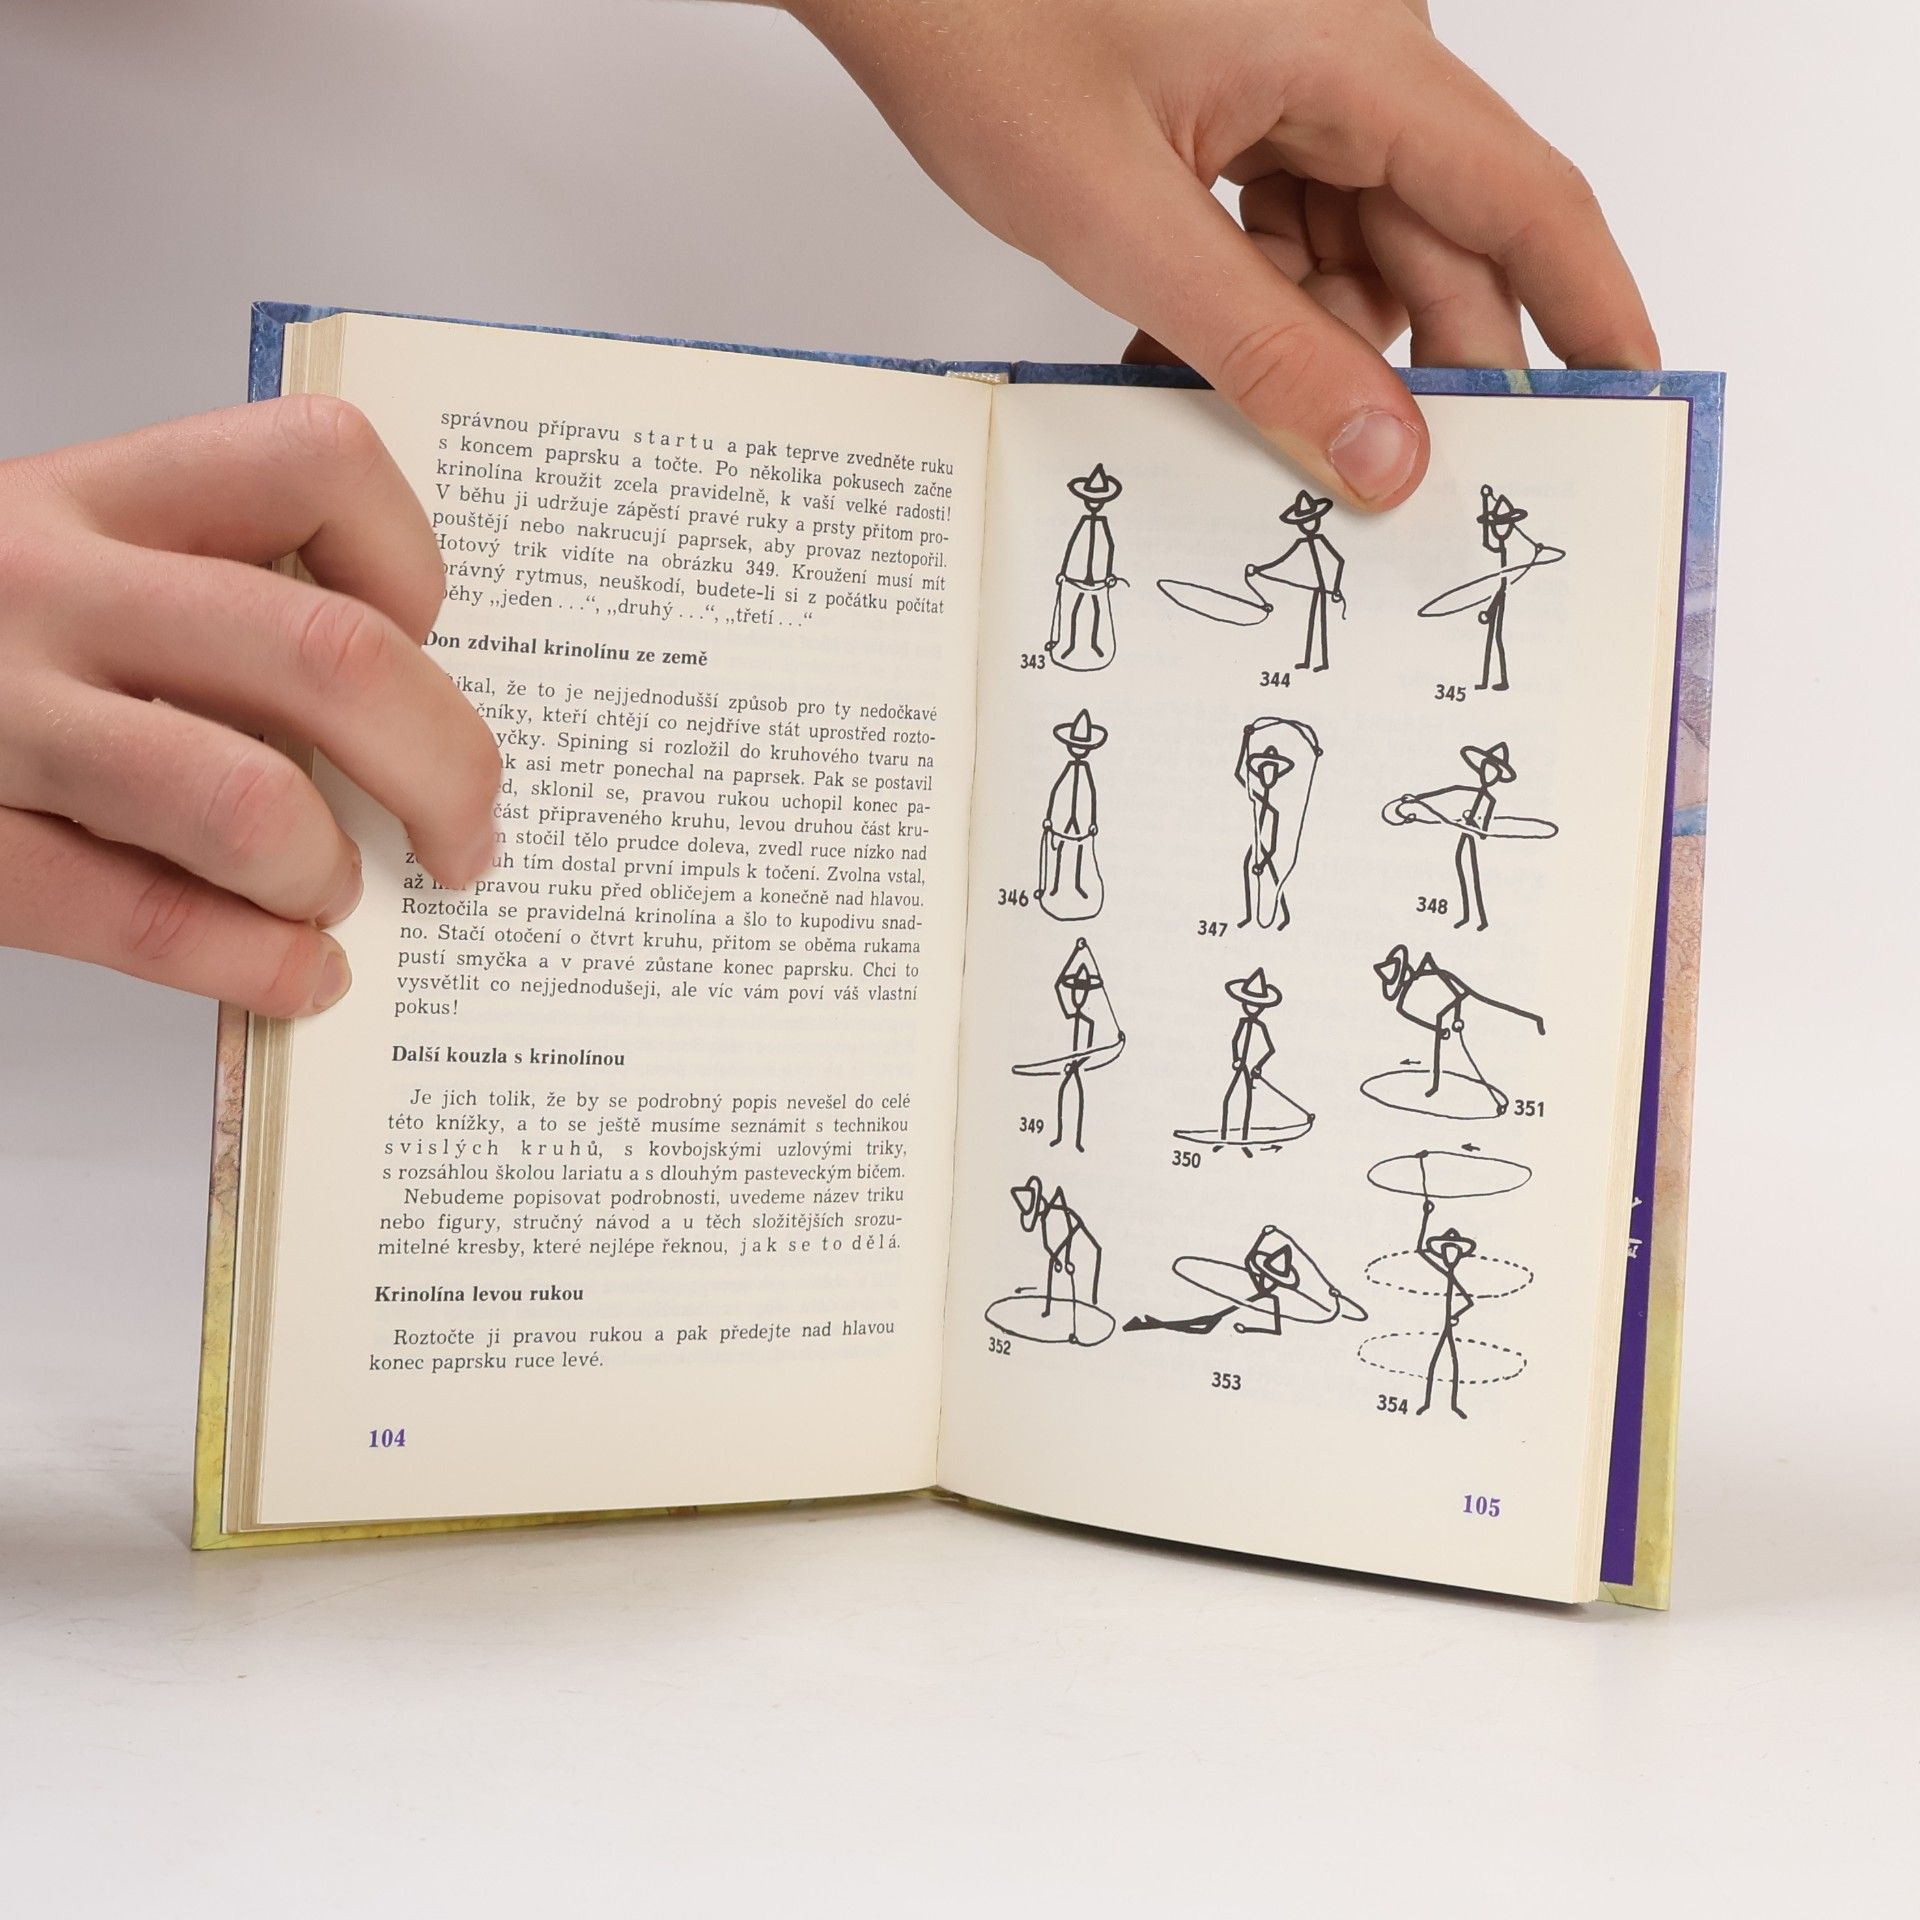 správnou přípravu startu a pak teprve zvedněte ruku
s koncem paprsku a točte. Po několika pokusech začne
krinolína kroužit zcela pravidelně, k vaší velké radosti!
V běhu ji udržuje zápěstí pravé ruky a prsty přitom pro-
pouštějí nebo nakrucují paprsek, aby provaz neztopořil.
Hotový trik vidíte na obrázku 349. Kroužení musí mít
rytmus, neuškodí, budete-li si z počátku počítat
„jeden . . .“, „druhý . . .“, „třetí . . .“
Don zdvihal krinolínu ze země
že to je nejjednodušší způsob pro ty nedočkavé
kteří chtějí co nejdříve stát uprostřed rozto-
Spining si rozložil do kruhového tvaru na
asi metr ponechal na paprsek. Pak se postavil
sklonil se, pravou rukou uchopil konec pa-
část připraveného kruhu, levou druhou část kru-
stočil tělo prudce doleva, zvedl ruce nízko nad
tím dostal první impuls k točení. Zvolna vstal,
až pravou ruku před obličejem a konečně nad hlavou.
Roztočila se pravidelná krinolína a šlo to kupodivu snad-
no. Stačí otočení o čtvrt kruhu, přitom se oběma rukama
pustí smyčka a v pravé zůstane konec paprsku. Chci to
vysvětlit co nejjednodušeji, ale víc vám poví váš vlastní
pokus!
Další kouzla s krinolínou
Je jich tolik, že by se podrobný popis nevešel do celé
této knížky, a to se ještě musíme seznámit s technikou
svislých kruhů, s kovbojskými uzlovými triky,
s rozsáhlou školou lariatu a s dlouhým pasteveckým bičem.
Nebudeme popisovat podrobnosti, uvedeme název triku
nebo figury, stručný návod a u těch složitějších srozu-
mitelné kresby, které nejlépe řeknou, jak se to dělá.
Krinolína levou rukou
Roztočte ji pravou rukou a pak předejte nad hlavou
konec paprsku ruce levé.
104
343
344
345
346
347
348
349
350
351
352
353
354
105